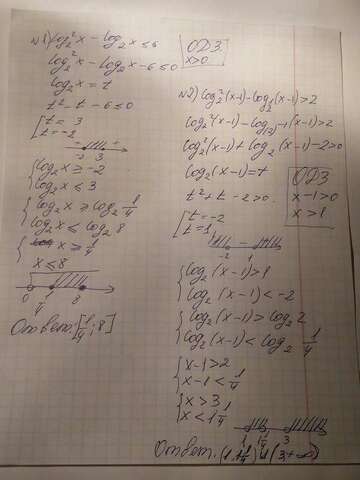 №1) log₂²x - log₂x ≤ 6
ОДЗ:
x>0
log₂²x - log₂x - 6 ≤ 0
log₂x = t
t² - t - 6 ≤ 0
[t = 3
t = -2
-2 3
{log₂x ≥ -2
log₂x ≤ 3
{log₂x ≥ log₂ 1/4
log₂x ≤ log₂ 8
{x ≥ 1/4
x ≤ 8
0 1/4 8
Ответ: [1/4; 8]
№2) log₂²(x-1) - log₁/₂(x-1) > 2
log₂²(x-1) + log₂(x-1) - 2 > 0
log₂(x-1) = t
ОДЗ
x-1>0
x>1
t² + t - 2 > 0
[t = -2
t = 1
-2 1
{log₂(x-1) > 1
log₂(x-1) < -2
{log₂(x-1) > log₂2
log₂(x-1) < log₂ 1/4
{x-1 > 2
x-1 < 1/4
{x > 3
x < 1 1/4
1 1 1/4 3
Ответ: (1; 1 1/4) U (3; +∞)